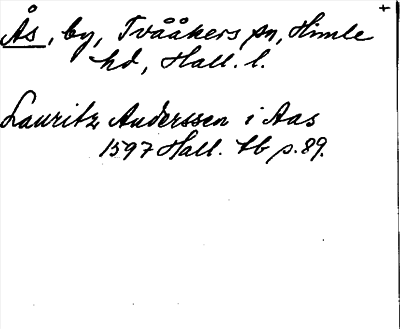 +
Ås, by, Tvååkers sn, Himle
hd, Hall. l.
Lauritz Anderssen i Aas
1597 Hall. tb p. 89.